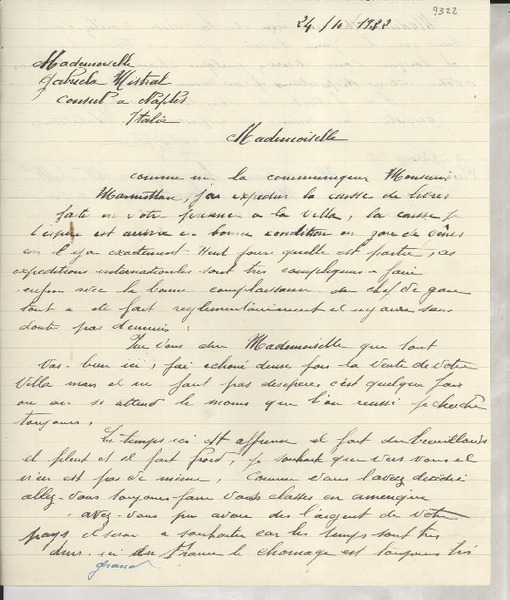 9322
24/10/1932
Mademoiselle
Gabriela Mistral
Consul a Naples
Italie
Mademoiselle
comme me la communiquer Monsieur
Mamottan, j'ai expedier la caisse de livres
faite en votre presence a la villa, la caisse je
l'espere est arrivee en bonne condition en gare de Gênes
car il y a exactement Huit jours quelle est partie, ces
expeditions internationales sont tres compliquees a faire
enfin avec la bonne complaisance du chef de gare
tout a ete fait reglementairement et il y aura sans
doute pas d'ennuie
Je vous dire Mademoiselle que tout
vas-bien ici, j'ai echoué deux fois la vente de votre
villa mais il ne faut pas desesperer c'est quelque fois
ou on si attend le moins que l'on reussi je cherche
toujours.
Le temps ici est affreux il fait du brouillards
il pleut et il fait froid, je souhaite que vers vous il
n'en est pas de même, Comme vous l'avez decidée
allez-vous toujours faire vos classes en amerique
avez-vous pu avoir de l'argent de votre
pays il serai a souhaiter car les temps sont tres
durs. ici en France le chomage est toujours très
grand